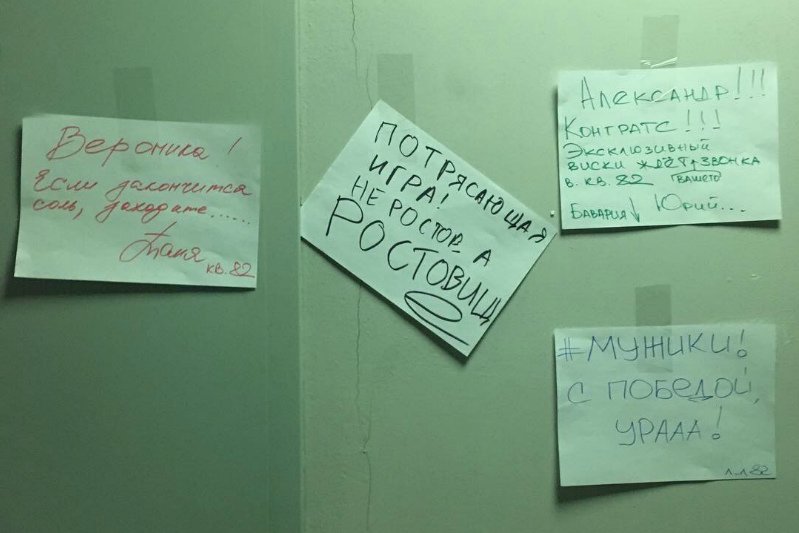 Вероника!
Если закончится
соль, заходите......
Таня
кв. 82
ПОТРЯСАЮЩАЯ
ИГРА!
НЕ РОСТОВ, А
РОСТОВИЩ
АЛЕКСАНДР!!!
КОНГРАТС!!!
ЭКСКЛЮЗИВНЫЙ
ВИСКИ ЖДЁТ ЗВОНКА
В. КВ. 82 ВАШЕГО
БАВАРИЯ ЮРИЙ...
#МУЖИКИ!
С ПОБЕДОЙ,
УРААА!
82